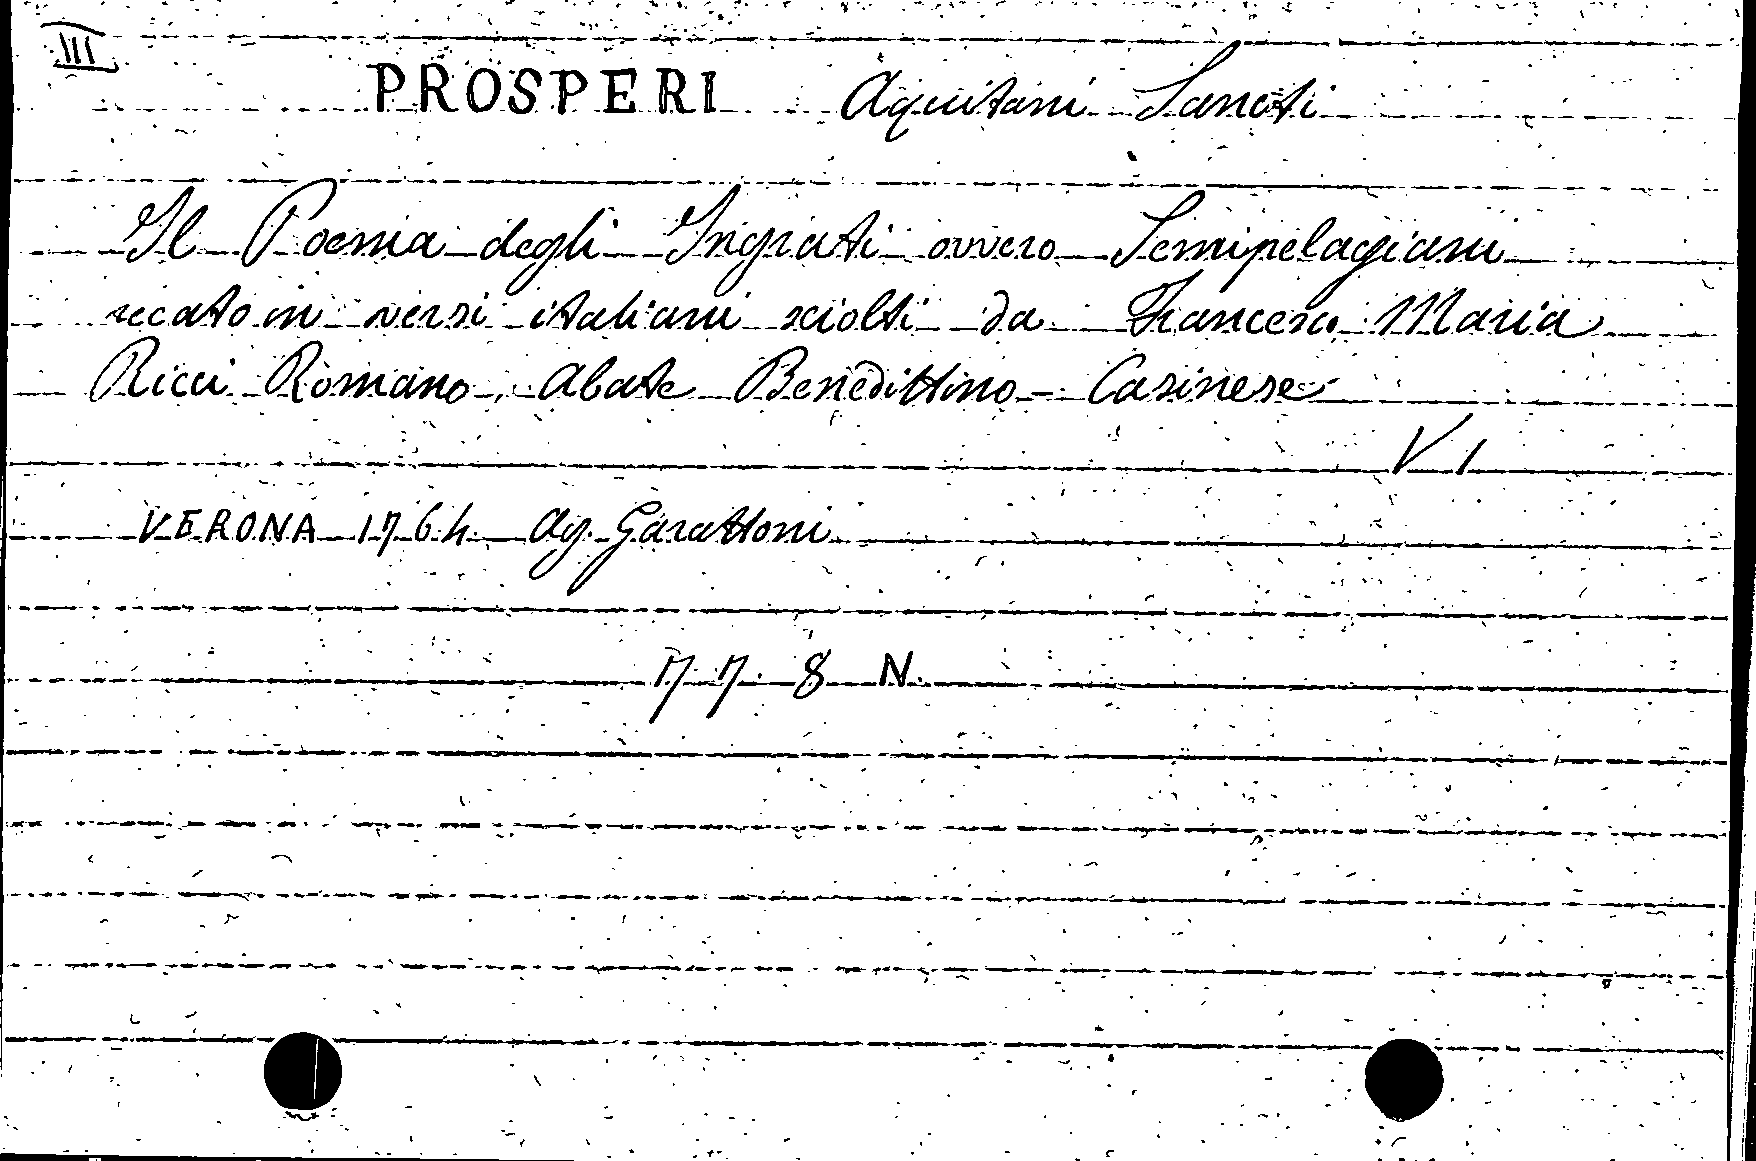 III
PROSPERI Aquitani Sancti
Il Poema degli Ingrati ovvero Semipelagiani
recato in versi italiani sciolti da Francesco Maria
Ricci Romano, Abate Benedittino - Casinese
V 1
VERONA 1764 Ag. Garattoni
77 8 N.